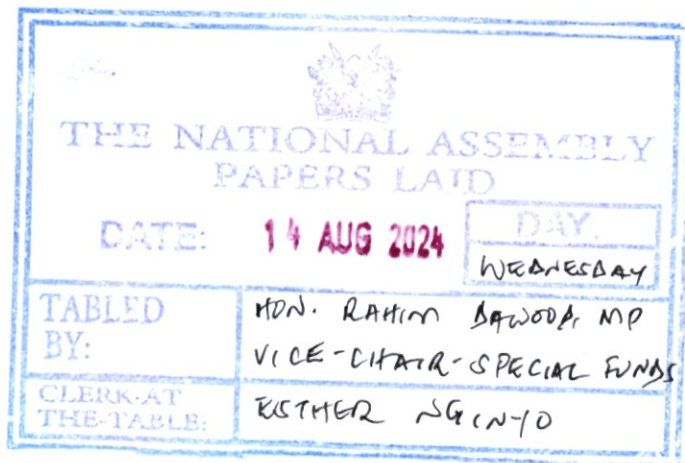 THE NATIONAL ASSEMBLY
PAPERS LAID
DATE: 14 AUG 2024 DAY.
WEDNESDAY
TABLED BY: HON. RAHIM DAWOOD, MP
VICE-CHAIR-SPECIAL FUNDS
CLERK-AT THE-TABLE: ESTHER NGINYO